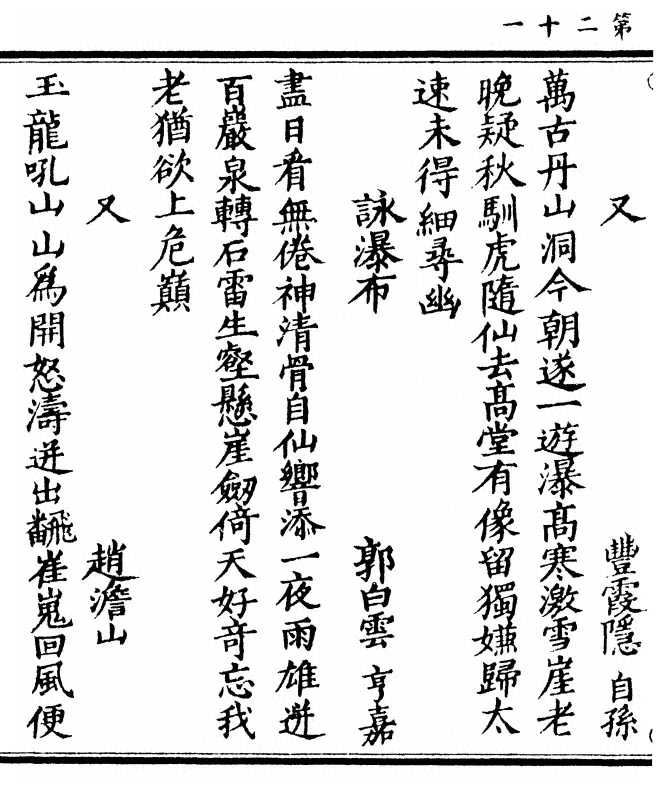 第二十一
又 豐霞隱 自孫
萬古丹山洞今朝遂一遊瀑髙寒激雪崖老
晚疑秋馴虎隨仙去髙堂有像留獨嫌歸太
速未得細尋幽
詠瀑布 郭白雲 亨嘉
盡日看無倦神清骨自仙響添一夜雨雄迸
百巖泉轉石雷生壑懸崖劒倚天好竒忘我
老猶欲上危巔
又 趙澹山
玉龍吼山山爲開怒濤迸出飜崔嵬回風便